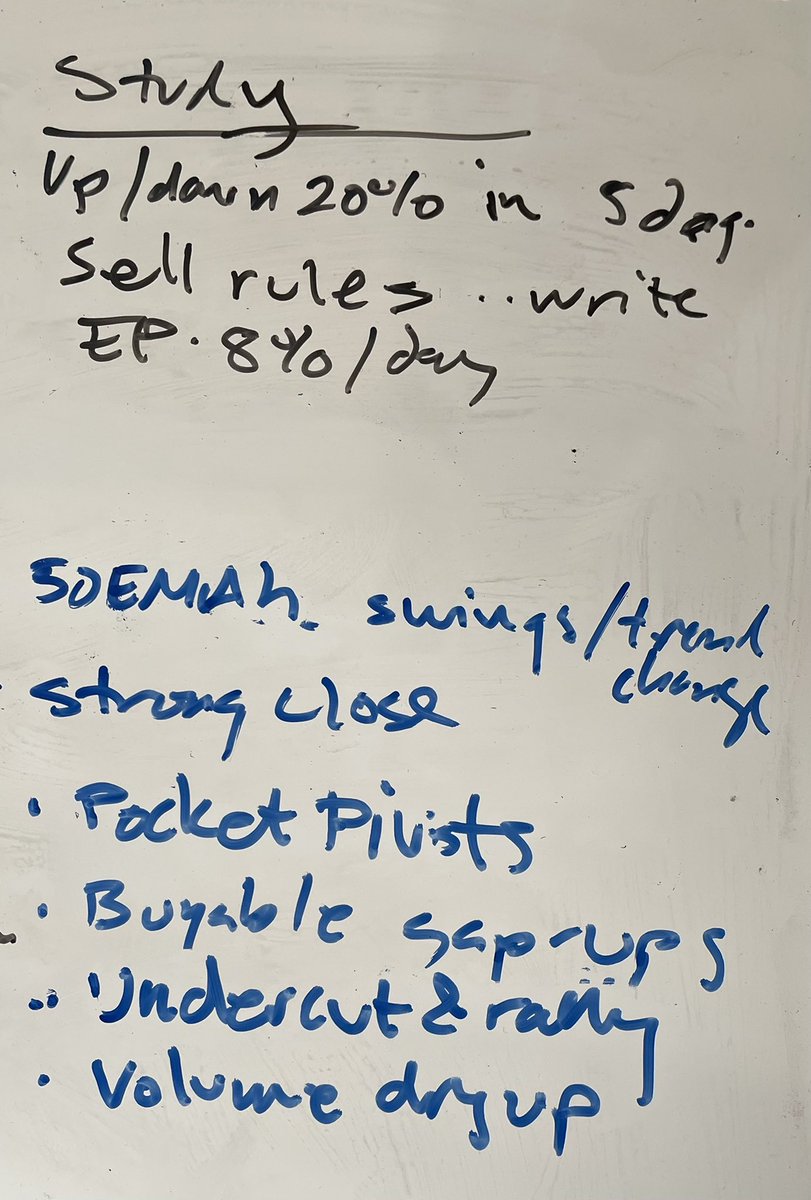 Study
Up/down 20% in 5 day.
Sell rules.. write
EP. 8%/day
50EMAh. swings/trend
change
Strong close
• Pocket Pivots
• Buyable gap-ups
•• Undercut & rally
• Volume dry up